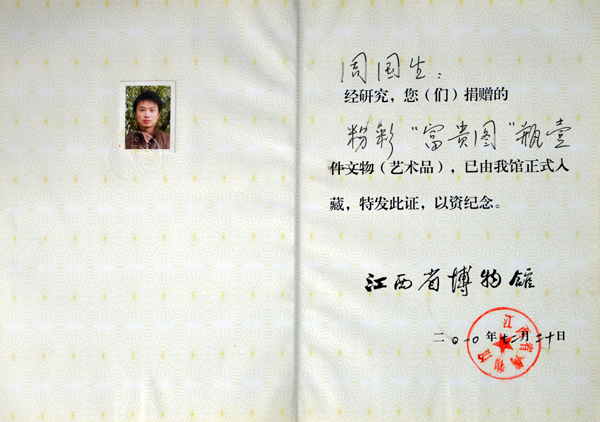 周国生：
经研究，您（们）捐赠的
粉彩“富贵图”瓶壹
件文物（艺术品），已由我馆正式入
藏，特发此证，以资纪念。
江西省博物馆
二〇一〇年十二月二十日
江西省博物馆